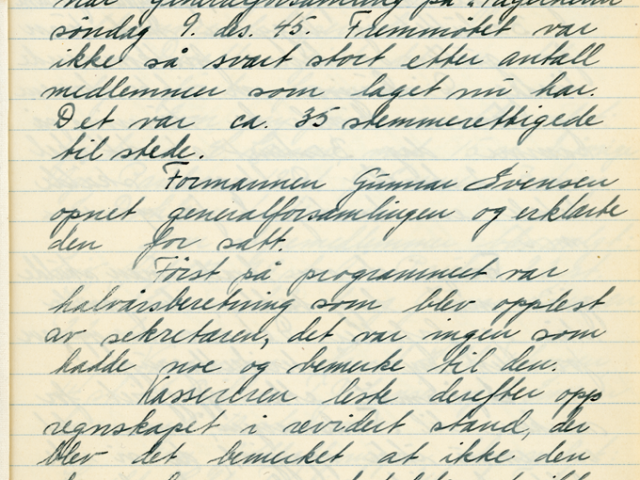 søndag 9. des. 45. Fremmøtet var
ikke så svært stort etter antall
medlemmer som laget nu har.
Det var ca. 35 stemmerettigede
til stede.
Formannen Gunnar Evensen
åpnet generalforsamlingen og erklærte
den for satt.
Først på programmet var
halvårsberetning som blev opplest
av sekretæren, det var ingen som
hadde noe og bemerke til den.
Kassereren leste derefter opp
regnskapet i revidert stand, der
blev det bemerket at ikke den